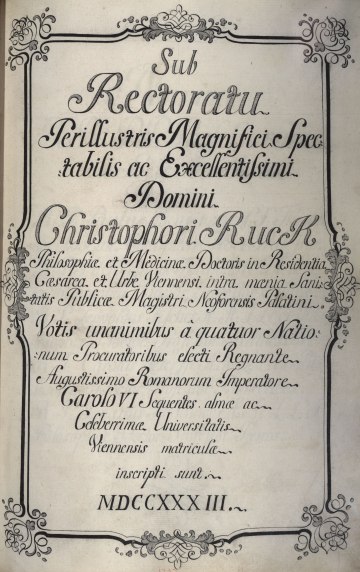 Sub
Rectoratu
Perillustris Magnifici Spec-
tabilis ac Excellentissimi
Domini
Christophori Ruck
Philosophiæ et Medicinæ Doctoris in Residentia
Cæsarea et Urbe Viennensi intra mænia Sani-
tatis Publicæ Magistri Neoforensis Palatini
Votis unanimibus à quatuor Natio-
num Procuratoribus electi Regnante
Augustissimo Romanorum Imperatore
Carolo VI Sequentes almæ ac
Celeberrimæ Universitatis
Viennensis matriculæ
inscripti sunt.
MDCCXXXIII.